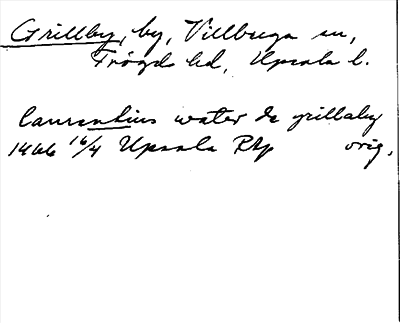 Grillby, by, Villberga sn,
Trögds hd, Upsala l.
laurentius water de grillaby
1466 16/4 Upsala RAp orig.